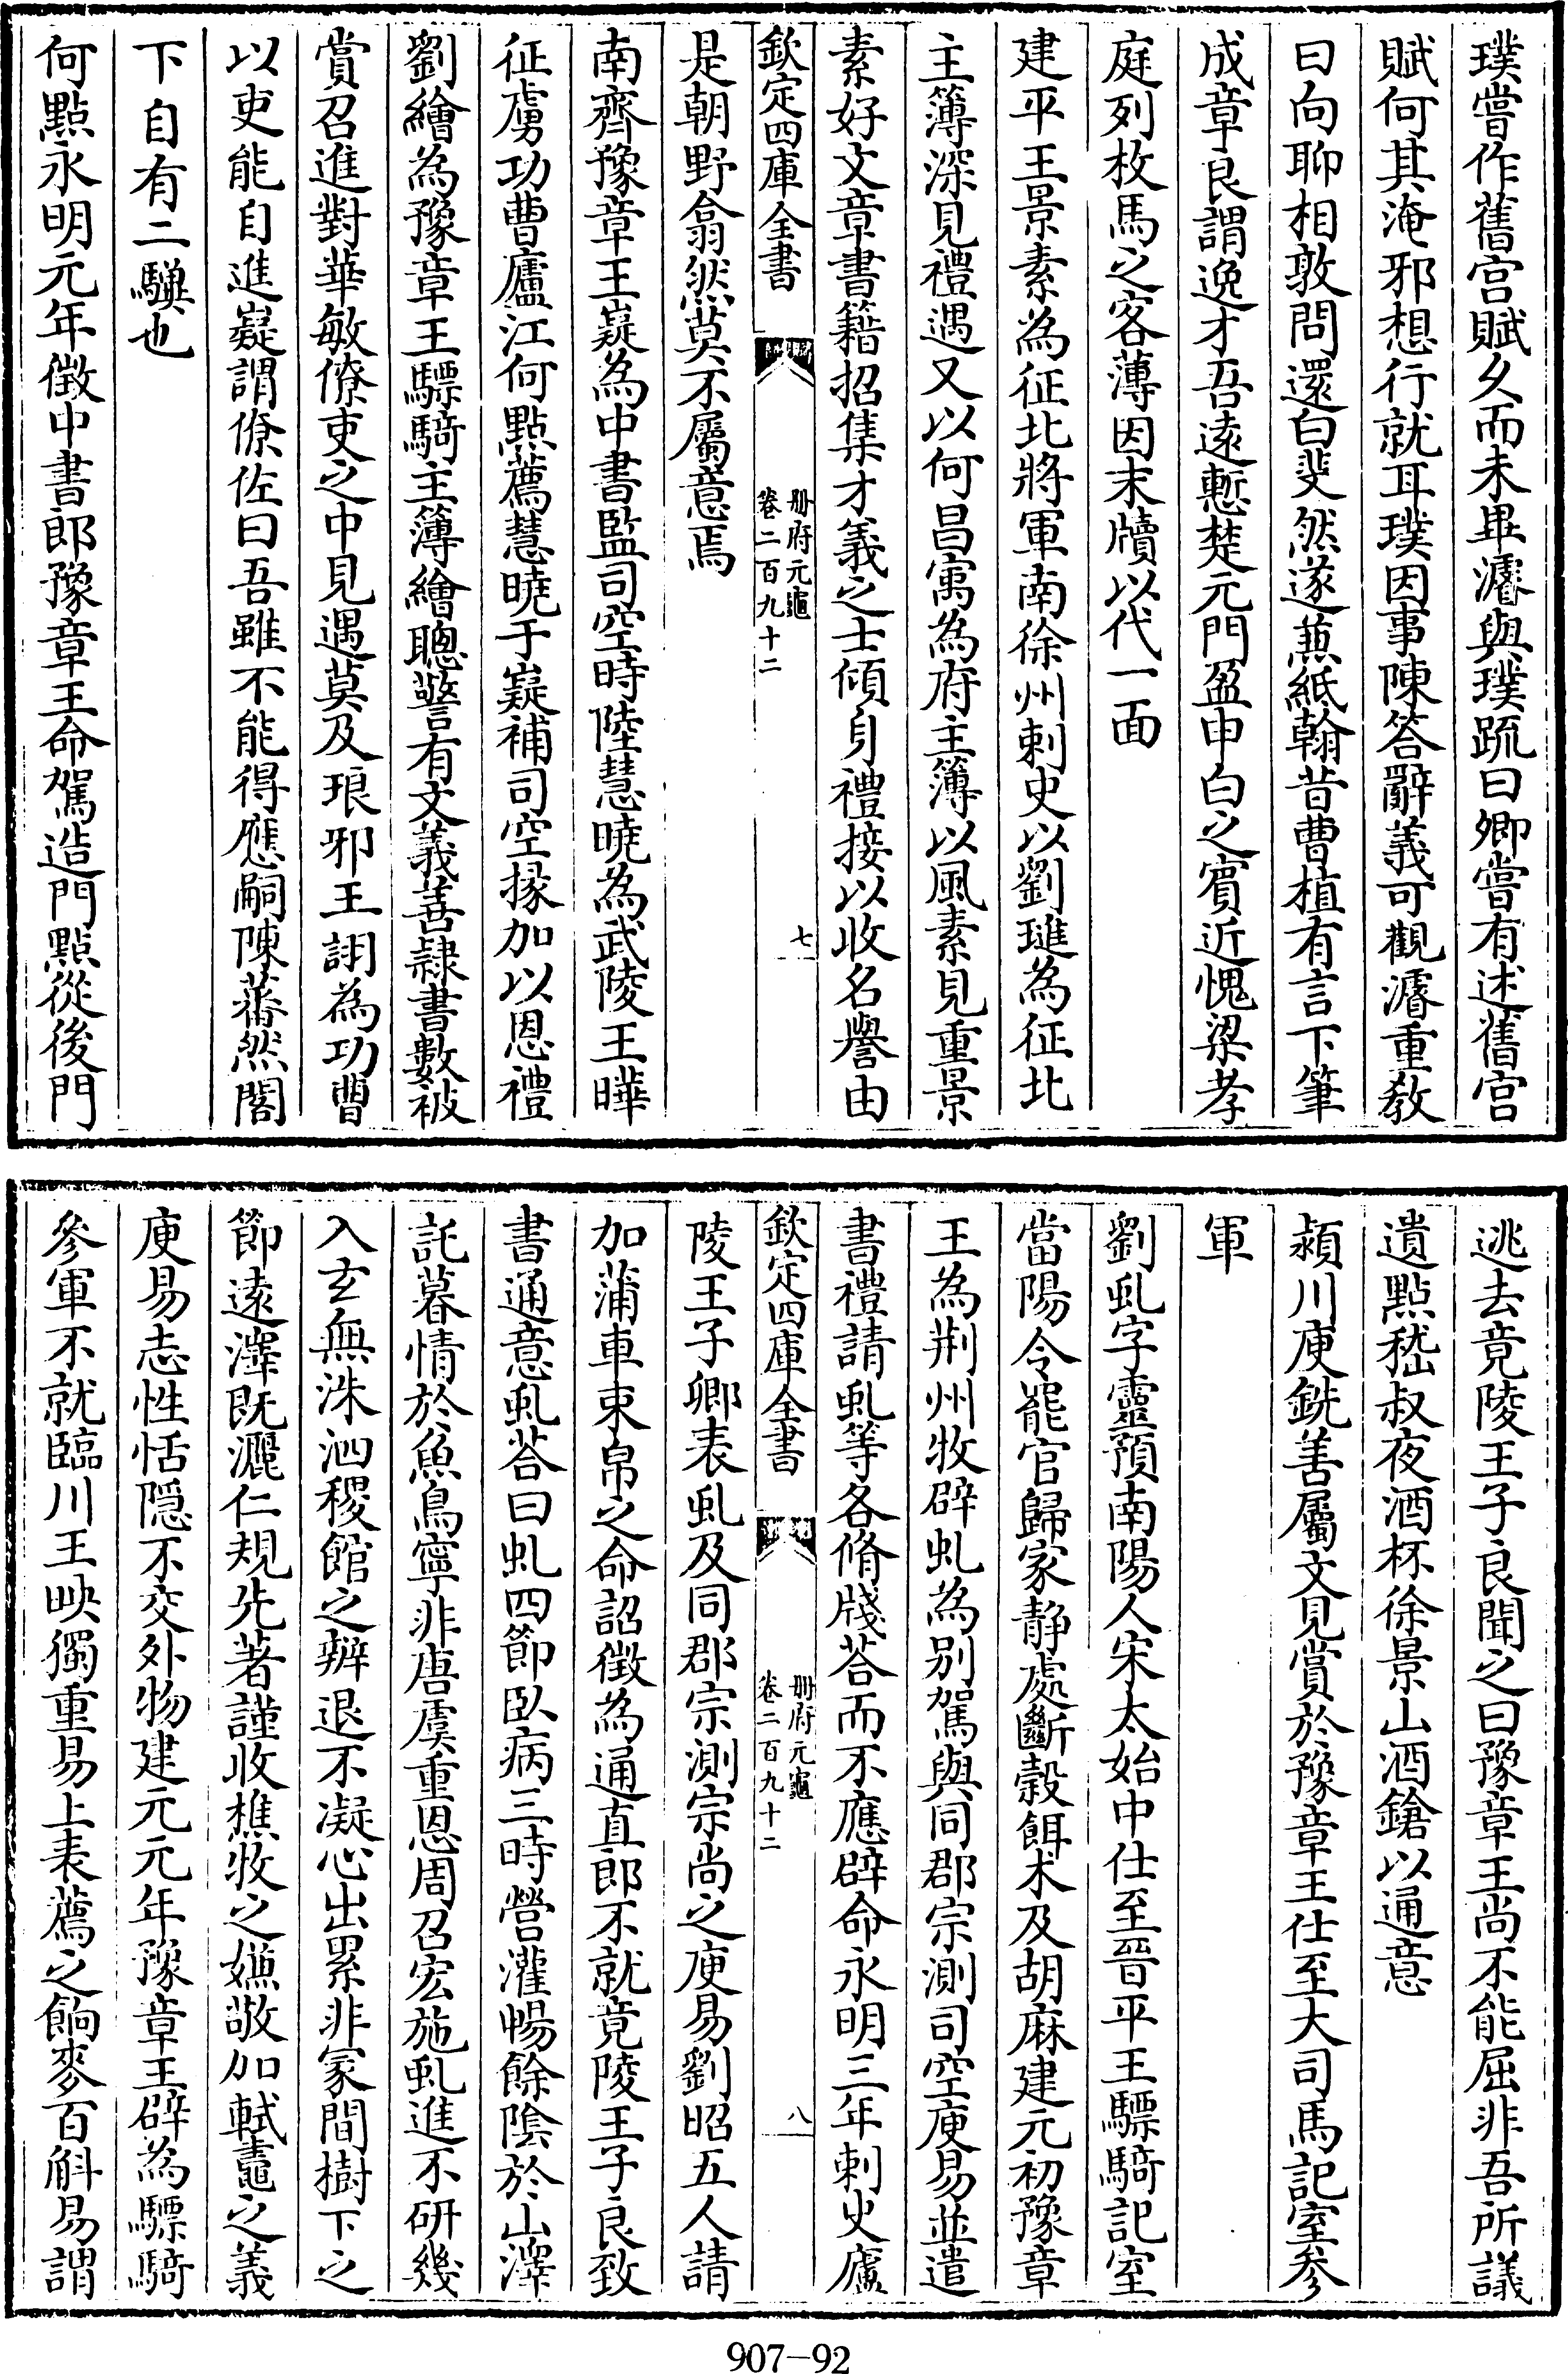 璞嘗作舊宫賦久而未畢濬與璞疏曰卿嘗有述舊宫
賦何其淹邪想行就耳璞因事陳答辭義可觀濬重教
曰向聊相敦問還白斐然遂蕪紙翰昔曹植有言下筆
成章良謂逸才吾遠慙楚元門盈申白之賓近愧梁孝
庭列枚馬之客薄因末牘以代一面
建平王景素為征北將軍南徐州刺史以劉璡為征北
主簿深見禮遇又以何昌㝢為府主簿以風素見重景
素好文章書籍招集才義之士傾身禮接以收名譽由
欽定四庫全書
冊府元龜
卷二百九十二
七
是朝野翕然莫不屬意焉
南齊豫章王嶷為中書監司空時陸慧曉為武陵王曄
征虜功曹廬江何點薦慧曉于嶷補司空掾加以恩禮
劉繪為豫章王驃騎主簿繪聰警有文義善隷書數被
賞召進對華敏僚吏之中見遇莫及琅邪王詡為功曹
以吏能自進嶷謂僚佐曰吾雖不能得應嗣陳蕃然閣
下自有二驥也
何點永明元年徵中書郎豫章王命駕造門點從後門
逃去竟陵王子良聞之曰豫章王尚不能屈非吾所議
遺點嵇叔夜酒杯徐景山酒鎗以通意
潁川庾銑善屬文見賞於豫章王仕至大司馬記室參
軍
劉虬字靈預南陽人宋太始中仕至晉平王驃騎記室
當陽令罷官歸家静處斷榖餌术及胡麻建元初豫章
王為荆州牧辟虬為别駕與同郡宗測司空庾易並遣
書禮請虬等各脩牋荅而不應辟命永明三年刺史廬
欽定四庫全書
冊府元龜
卷二百九十二
八
陵王子卿表虬及同郡宗測宗尚之庾易劉昭五人請
加蒲車束帛之命詔徵為通直郎不就竟陵王子良致
書通意虬荅曰虬四節臥病三時營灌暢餘陰於山澤
託暮情於魚鳥寧非唐虞重恩周召宏施虬進不研幾
入玄無洙泗稷館之辨退不凝心出累非冡間樹下之
節遠澤既灑仁規先著謹收樵牧之嫌敬加軾鼃之義
庾易志性恬隱不交外物建元元年豫章王辟為驃騎
參軍不就臨川王映獨重易上表薦之餉麥百斛易謂
907-92